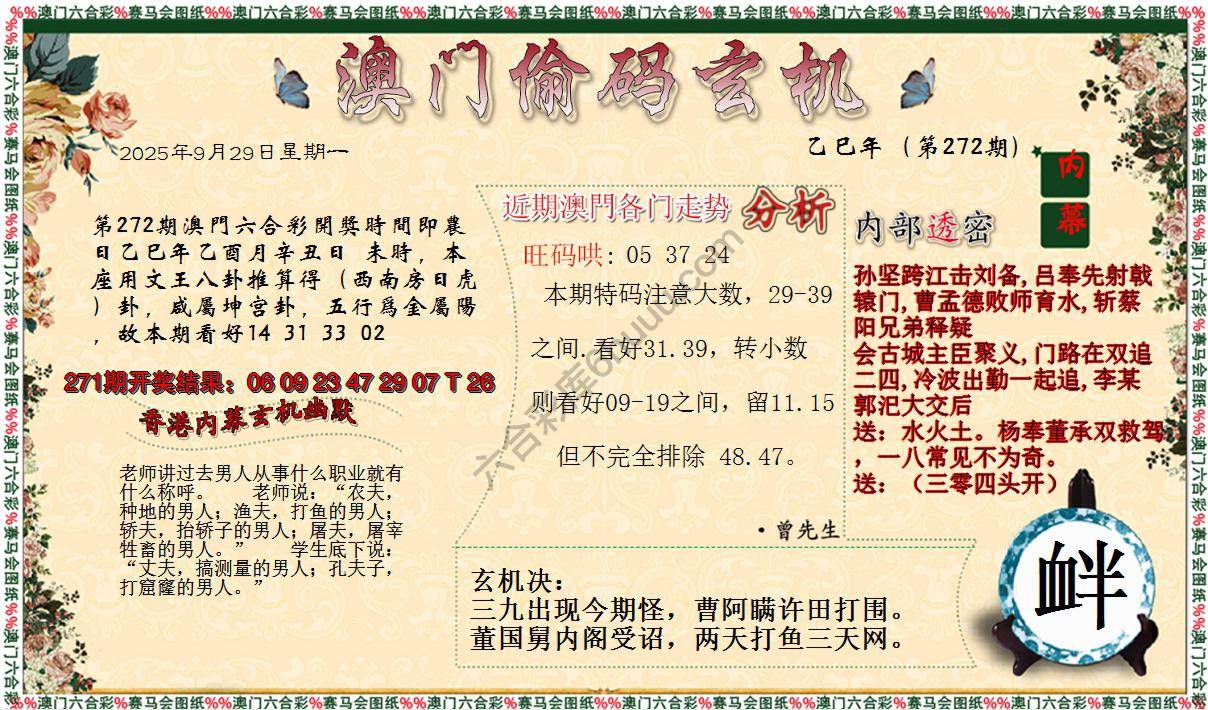 %%澳门六合彩%赛马会图纸%%澳门六合彩%赛马会图纸%%澳门六合彩%赛马会图纸
澳门偷码玄机
2025年9月29日星期一
乙巳年（第272期）
内幕
第272期澳門六合彩開獎時間即農
日乙巳年乙酉月辛丑日 未時，本
座用文王八卦推算得（西南房日虎
）卦，咸屬坤宫卦，五行爲金屬陽
，故本期看好14 31 33 02
271期开奖结果：06 09 23 47 29 07 T 26
香港内幕玄机幽默
老师讲过去男人从事什么职业就有
什么称呼。 老师说：“农夫，
种地的男人；渔夫，打鱼的男人；
轿夫，抬轿子的男人；屠夫，屠宰
牲畜的男人。” 学生底下说：
“丈夫，搞测量的男人；孔夫子，
打窟窿的男人。”
近期澳門各门走势 分析
旺码哄: 05 37 24
本期特码注意大数，29-39
之间.看好31.39，转小数
则看好09-19之间，留11.15
但不完全排除 48.47。
·曾先生
内部透密
孙坚跨江击刘备,吕奉先射戟
辕门,曹孟德败师育水,斩蔡
阳兄弟释疑
会古城主臣聚义,门路在双追
二四,冷波出勤一起追,李某
郭汜大交后
送：水火土。杨奉董承双救驾
，一八常见不为奇。
送：（三零四头开）
玄机决：
三九出现今期怪，曹阿瞒许田打围。
董国舅内阁受诏，两天打鱼三天网。
衅